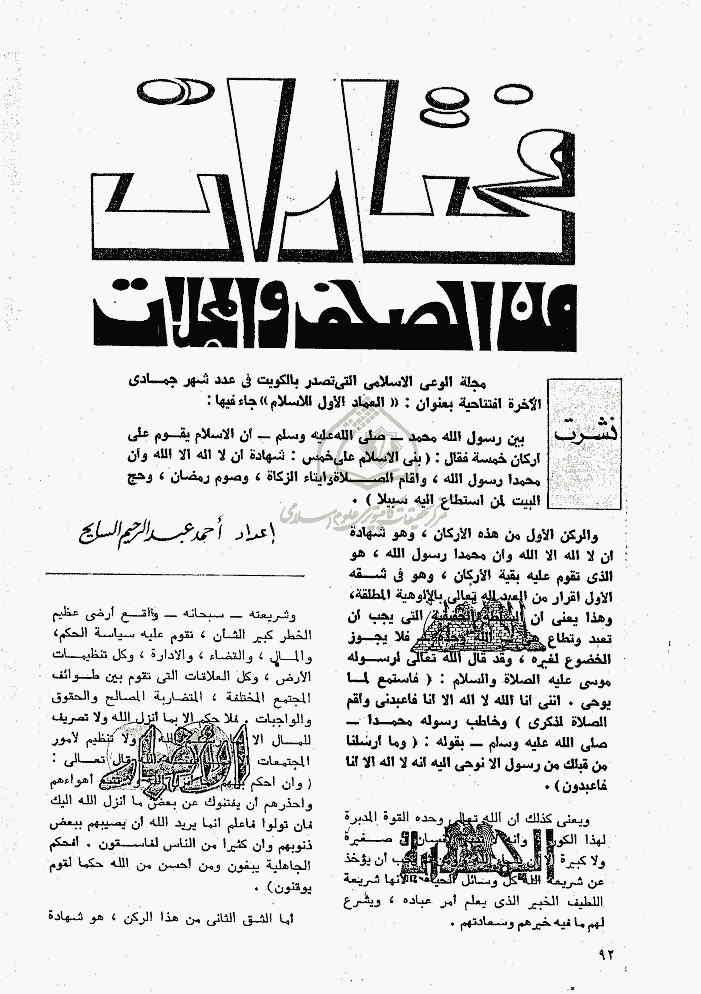 مختارات
من الصحف والمجلات
نشرت
مجلة الوعى الاسلامى التى تصدر بالكويت فى عدد شهر جمادى
الآخرة افتتاحية بعنوان : « العماد الأول للاسلام » جاء فيها :
بين رسول الله محمد — صلى الله عليه وسلم — ان الاسلام يقوم على
اركان خمسة فقال : ( بنى الاسلام على خمس : شهادة ان لا اله الا الله وان
محمدا رسول الله ، واقام الصلاة وايتاء الزكاة ، وصوم رمضان ، وحج
البيت لمن استطاع اليه سبيلا ) .
إعداد أحمد عبد الرحيم السايح
والركن الأول من هذه الأركان ، وهو شهادة
ان لا اله الا الله وان محمدا رسول الله ، هو
الذى تقوم عليه بقية الأركان ، وهو فى شقه
الأول اقرار من العبد لله تعالى بالألوهية المطلقة،
وهذا يعنى أن السلطة الحقيقية التى يجب أن
تعبد وتطاع الله فلا يجوز
الخضوع لغيره ، وقد قال الله تعالى لرسوله
موسى عليه الصلاة والسلام : ( فاستمع لما
يوحى . اننى أنا الله لا اله الا أنا فاعبدنى واقم
الصلاة لذكرى ) وخاطب رسوله محمدا —
صلى الله عليه وسلم — بقوله : ( وما أرسلنا
من قبلك من رسول الا نوحى اليه انه لا اله الا انا
فاعبدون ) .
ويعنى كذلك ان الله تعالى وحده القوة المدبرة
لهذا الكون وأنه صغيرة
ولا كبيرة يجب أن يؤخذ
عن شريعة الله كل وسائل الحياة لأنها شريعة
اللطيف الخبير الذى يعلم أمر عباده ، ويشرع
لهم ما فيه خيرهم وسعادتهم .
وشريعته — سبحانه — واقع أرضى عظيم
الخطر كبير الشأن ، تقوم عليه سياسة الحكم،
والمال ، والقضاء ، والادارة ، وكل تنظيمات
الأرض ، وكل العلاقات التى تقوم بين طوائف
المجتمع المختلفة ، المتضاربة المصالح والحقوق
والواجبات . فلا حكم الا بما أنزل الله ولا تصريف
للمال الا الله ولا تنظيم لأمور
المجتمعات قال تعالى :
( وان احكم بينهم بما انزل الله ولا تتبع أهواءهم
واحذرهم أن يفتنوك عن بعض ما انزل الله اليك
فان تولوا فاعلم انما يريد الله أن يصيبهم ببعض
ذنوبهم وان كثيرا من الناس لفاسقون . افحكم
الجاهلية يبغون ومن أحسن من الله حكما لقوم
يوقنون ) .
أما الشق الثانى من هذا الركن ، هو شهادة
٩٢